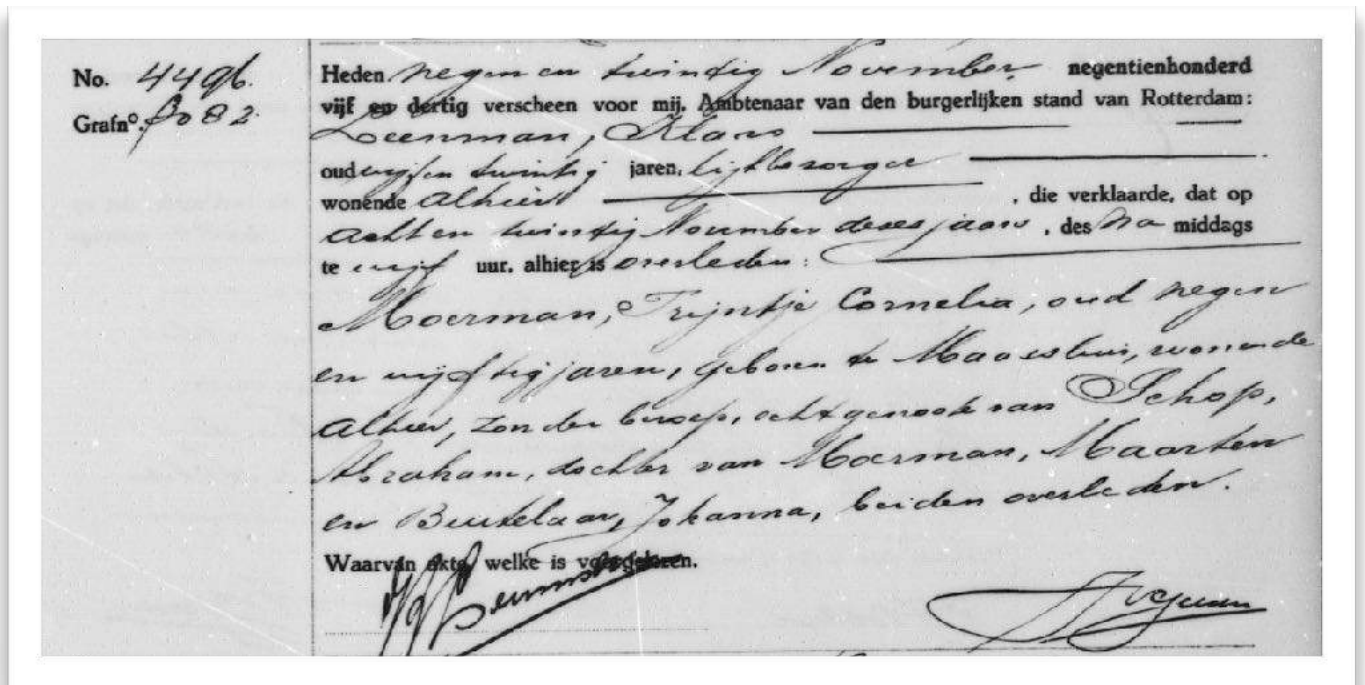 No. 4496.
Grafnº.
Heden negen en twintig November negentienhonderd
vijf en dertig verscheen voor mij, Ambtenaar van den burgerlijken stand van Rotterdam:
Leenman, Klaas
oud vijf en twintig jaren, lijkbezorger
wonende alhier, die verklaarde, dat op
acht en twintig November dezes jaars, des na middags
te vijf uur, alhier is overleden:
Moerman, Trijntje Cornelia, oud negen
en vijftig jaren, geboren te Maassluis, wonende
alhier, zonder beroep, echtgenoote van Schop,
Abraham, dochter van Moerman, Maarten
en Beukelaar, Johanna, beiden overleden.
Waarvan akte, welke is voorgelezen.